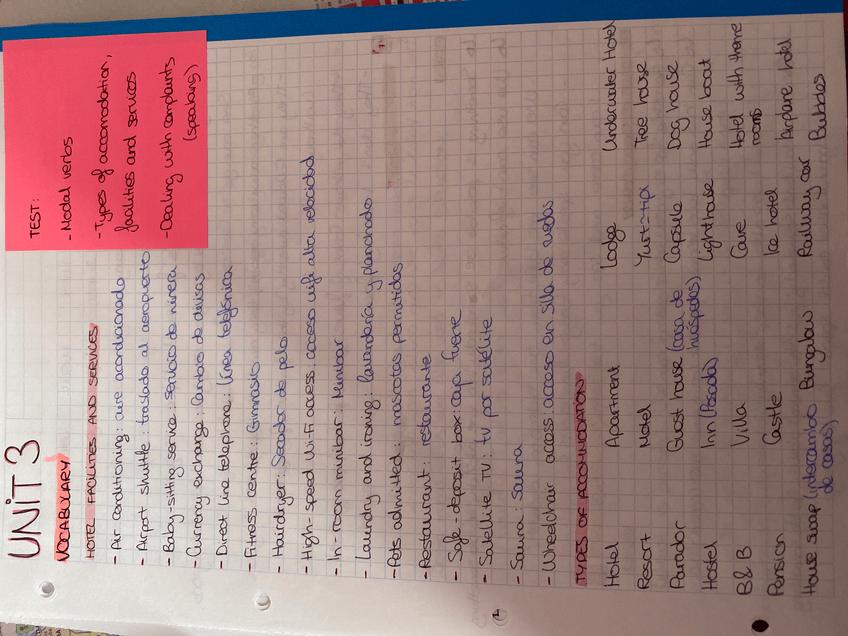 UNIT 3
VOCABULARY
HOTEL FACILITIES AND SERVICES
- Air conditioning: aire acondicionado
- Airport shuttle: traslado al aeropuerto
- Baby-sitting service: servicio de niñera
- Currency exchange: Cambio de divisas
- Direct line telephone: línea telefónica
- Fitness centre: Gimnasio
- Hairdryer: Secador de pelo
- High-speed Wi-Fi access acceso wifi alta velocidad
- In-room minibar: Minibar
- Laundry and ironing: lavandería y planchado
- Pets admitted: mascotas permitidas
- Restaurant: restaurante
- Safe-deposit box: caja fuerte
- Satellite TV: tv por satélite
- Sauna: sauna
- Wheelchair access: acceso en silla de ruedas
TYPES OF ACCOMODATION
Hotel Apartment Lodge Underwater Hotel
Resort Motel Yurt=tipi Tree house
Parador Guest house (casa de huéspedes) Capsule Dog house
Hostel Inn (Posada) Lighthouse House boat
B & B Villa Cave Hotel with theme rooms
Pension Castle Ice hotel Airplane hotel
House swap (intercambio de casas) Bungalow Railway car Bubbles
TEST:
- Modal verbs
- Types of accomodation,
facilities and services
- Dealing with complaints
(speaking)